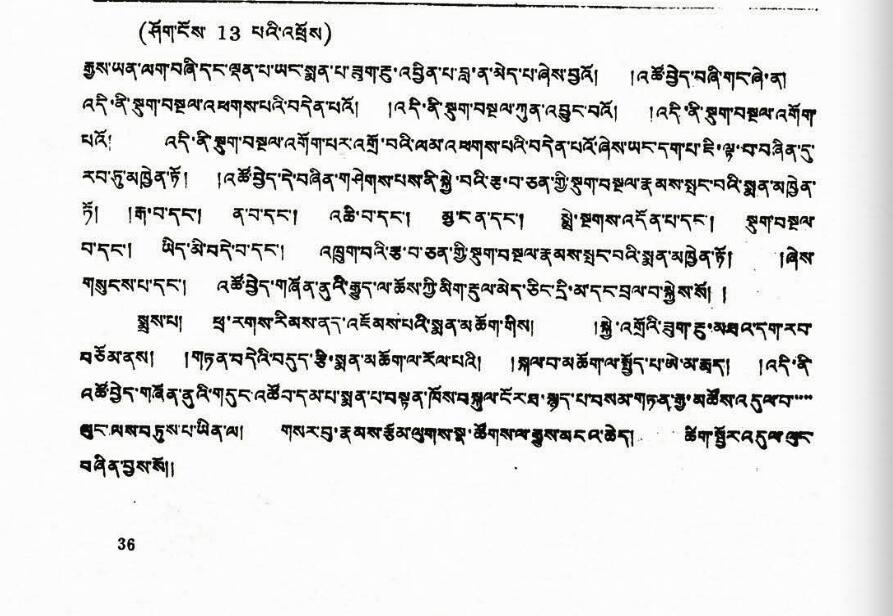 (ཤོག་ངོས་ 13 པའི་འཕྲོས)
རྒྱས་ཡན་ལག་བཞི་དང་ལྡན་པ་ཡང་སྨན་པ་ཟུག་རྔུ་འབྱིན་པ་བླ་ན་མེད་པ་ཞེས་བྱའོ། །འཚོ་བྱེད་བཞི་གང་ཞེ་ན།
འདི་ནི་སྡུག་བསྔལ་འཕགས་པའི་བདེན་པའོ། །འདི་ནི་སྡུག་བསྔལ་ཀུན་འབྱུང་བའོ། །འདི་ནི་སྡུག་བསྔལ་འགོག་
པའོ། འདི་ནི་སྡུག་བསྔལ་འགོག་པར་འགྲོ་བའི་ལམ་འཕགས་པའི་བདེན་པའོ་ཞེས་ཡང་དག་པ་ཇི་ལྟ་བ་བཞིན་དུ་
རབ་ཏུ་མཁྱེན་ཏོ། །འཚོ་བྱེད་དེ་བཞིན་གཤེགས་པས་ནི་སྐྱེ་བའི་རྩ་བ་ཅན་གྱི་སྡུག་བསྔལ་རྣམས་སྤང་བའི་སྨན་མཁྱེན་
ཏོ། །རྒ་བ་དང་། ན་བ་དང་། འཆི་བ་དང་། མྱ་ངན་དང་། སྨྲེ་སྔགས་འདོན་པ་དང་། སྡུག་བསྔལ་
བ་དང་། ཡིད་མི་བདེ་བ་དང་། འཁྲུག་བའི་རྩ་བ་ཅན་གྱི་སྡུག་བསྔལ་རྣམས་སྤང་བའི་སྨན་མཁྱེན་ཏོ། །ཞེས་
གསུངས་པ་དང་། འཚོ་བྱེད་གཞོན་ནུའི་རྒྱུད་ལ་ཆོས་ཀྱི་མིག་རྡུལ་མེད་ཅིང་དྲི་མ་དང་བྲལ་བ་སྐྱེས་སོ། །
སྨྲས་པ། ཕྲ་རགས་རིམས་ནད་འཇོམས་པའི་སྨན་མཆོག་གིས། །སྐྱེ་འགྲོའི་ཟུག་རྔུ་མཐའ་དག་རབ་
བཅོམ་ནས། །གཏན་བདེའི་བདུད་རྩི་སྨན་མཆོག་ལ་རོལ་པའི། །སྐལ་བ་མཆོག་ལ་སྤྱོད་པ་ཨེ་མ་རྨད། །འདི་ནི་
འཚོ་བྱེད་གཞོན་ནུའི་གདུང་འཚོབ་དམ་པ་སྨན་པ་བསྟན་ཁོས་བསྐུལ་ངོར་ཐ་སྙད་པ་བསམ་གཏན་རྒྱ་མཚོས་འདུལ་བ་
ལུང་ལས་བཏུས་པ་ཡིན་ལ། གསར་བུ་རྣམས་རྩོམ་ལུགས་སྣ་ཚོགས་ལ་རྒྱུས་མངའ་ཆེད། ཚིག་སྦྱོར་འདུལ་ལུང་
བཞིན་བྱས་སོ།།
36